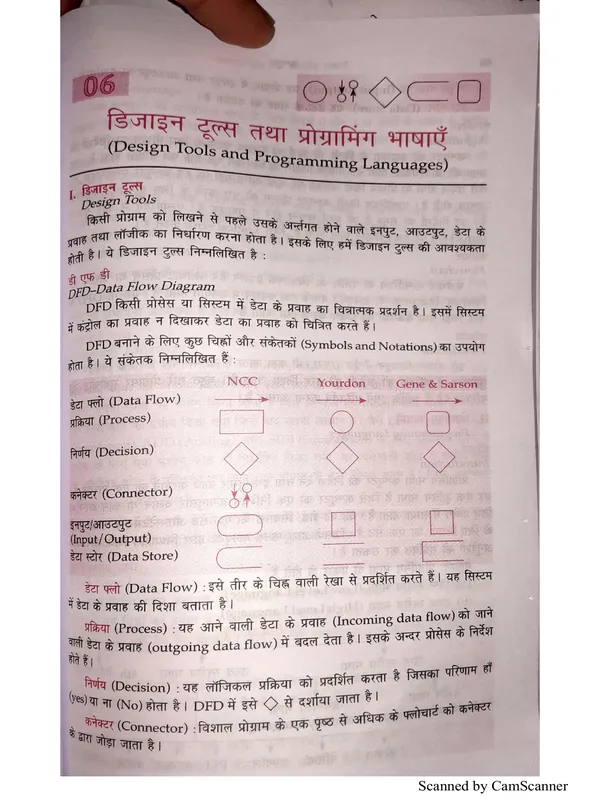 06
डिजाइन टूल्स तथा प्रोग्रामिंग भाषाएँ
(Design Tools and Programming Languages)
I. डिजाइन टूल्स
Design Tools
किसी प्रोग्राम को लिखने से पहले उसके अर्न्तगत होने वाले इनपुट, आउटपुट, डेटा के
प्रवाह तथा लॉजीक का निर्धारण करना होता है। इसके लिए हमें डिजाइन टुल्स की आवश्यकता
होती है। ये डिजाइन टुल्स निम्नलिखित है :
डी एफ डी
DFD–Data Flow Diagram
DFD किसी प्रोसेस या सिस्टम में डेटा के प्रवाह का चित्रात्मक प्रदर्शन है। इसमें सिस्टम
में कंट्रोल का प्रवाह न दिखाकर डेटा का प्रवाह को चित्रित करते हैं।
DFD बनाने के लिए कुछ चिह्नों और संकेतकों (Symbols and Notations) का उपयोग
होता है। ये संकेतक निम्नलिखित हैं :
NCC Yourdon Gene & Sarson
डेटा फ्लो (Data Flow)
प्रक्रिया (Process)
निर्णय (Decision)
कनेक्टर (Connector)
इनपुट/आउटपुट
(Input/Output)
डेटा स्टोर (Data Store)
डेटा फ्लो (Data Flow) : इसे तीर के चिह्न वाली रेखा से प्रदर्शित करते हैं। यह सिस्टम
में डेटा के प्रवाह की दिशा बताता है।
प्रक्रिया (Process) : यह आने वाली डेटा के प्रवाह (Incoming data flow) को जाने
वाली डेटा के प्रवाह (outgoing data flow) में बदल देता है। इसके अन्दर प्रोसेस के निर्देश
होते हैं।
निर्णय (Decision) : यह लॉजिकल प्रक्रिया को प्रदर्शित करता है जिसका परिणाम हाँ
(yes) या ना (No) होता है। DFD में इसे ◇ से दर्शाया जाता है।
कनेक्टर (Connector) : विशाल प्रोग्राम के एक पृष्ठ से अधिक के फ्लोचार्ट को कनेक्टर
के द्वारा जोड़ा जाता है।
Scanned by CamScanner